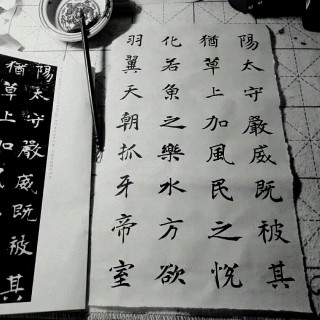 陽太守嚴威既被其
猶草上加風民之悅
化若魚之樂水方欲
羽翼天朝抓牙帝室
陽太守嚴威既被其
猶草上加